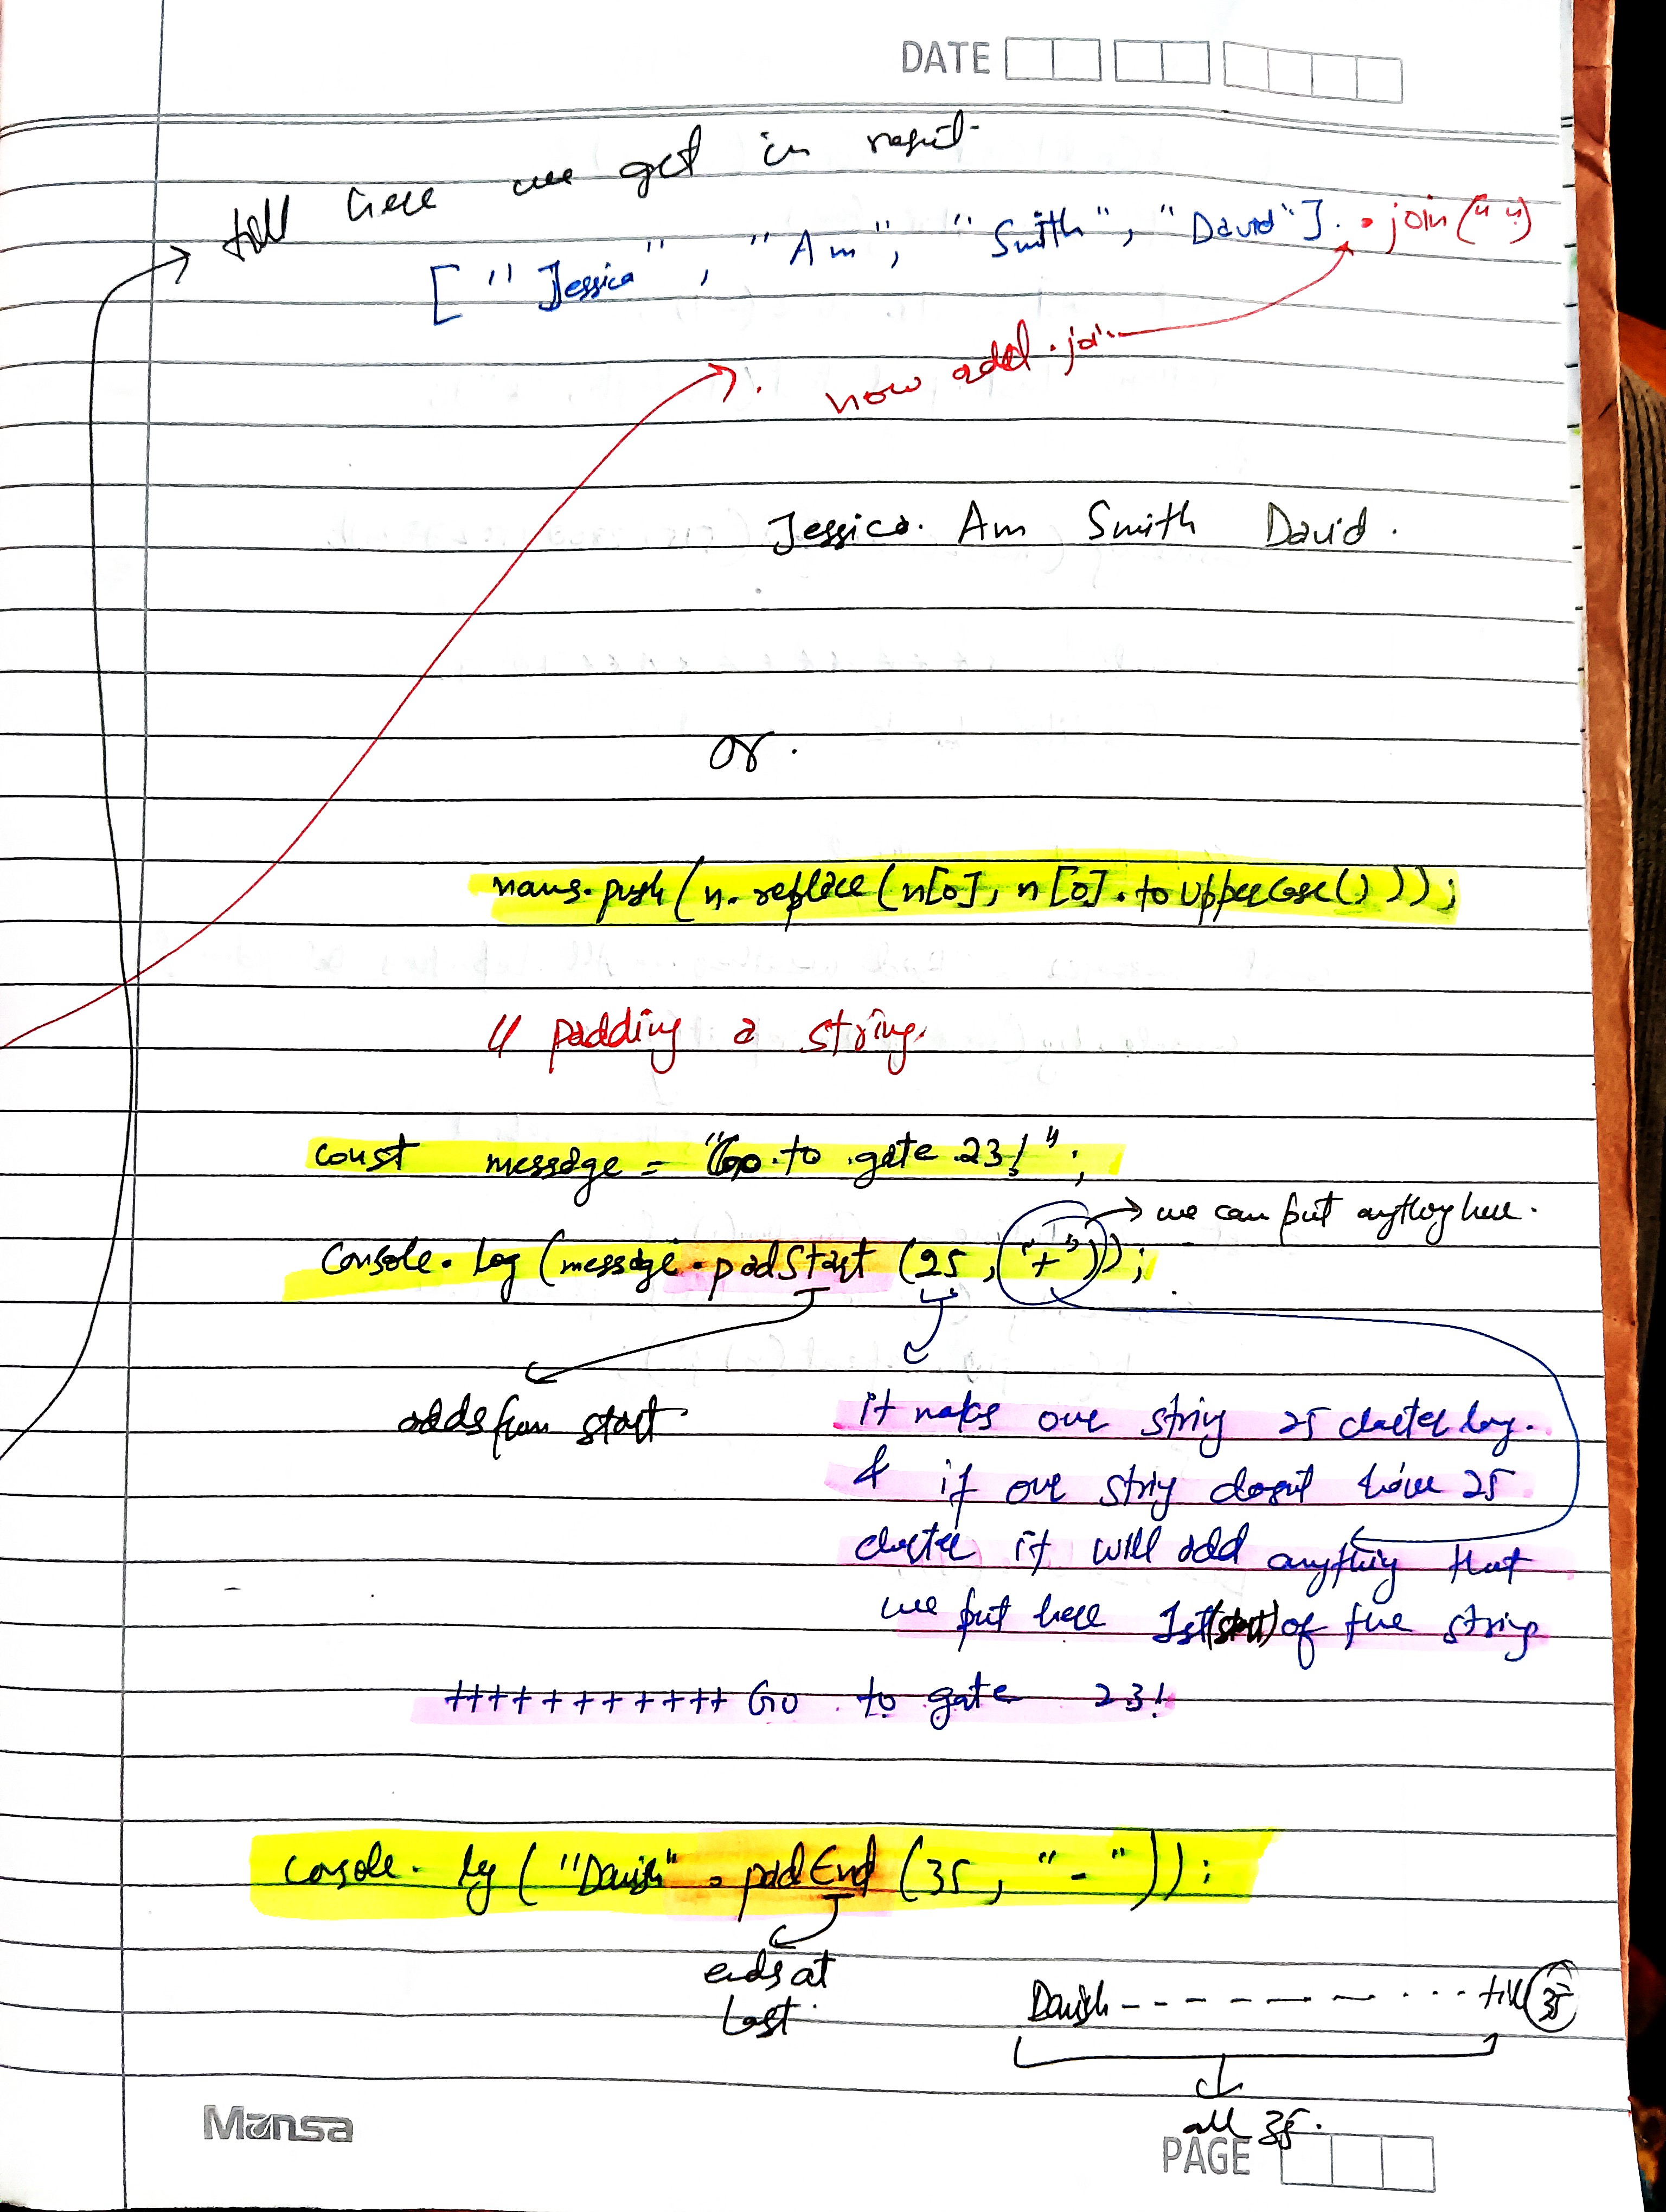 DATE
till here we get in
["Jessica", "Am", "Smith", "David"]. .join(" ")
now add .join
Jessica. Am Smith David.
or.
names.push(n.replace(n[0], n[0].toUpperCase()));
// padding a string.
const message = "Go to gate 23!";
we can put anything here.
Console.log(message.padStart(25, "+"));
adds from start
it makes our string 25 long.
& if our string doesn't have 25
it will add anything that
we put here 1st(start) of the string
+++++++++++ Go to gate 23!
console.log("Danish".padEnd(35, "-"));
ends at
last.
Danish - - - - - - - . . . . till 35
all 35.
Mansa
PAGE